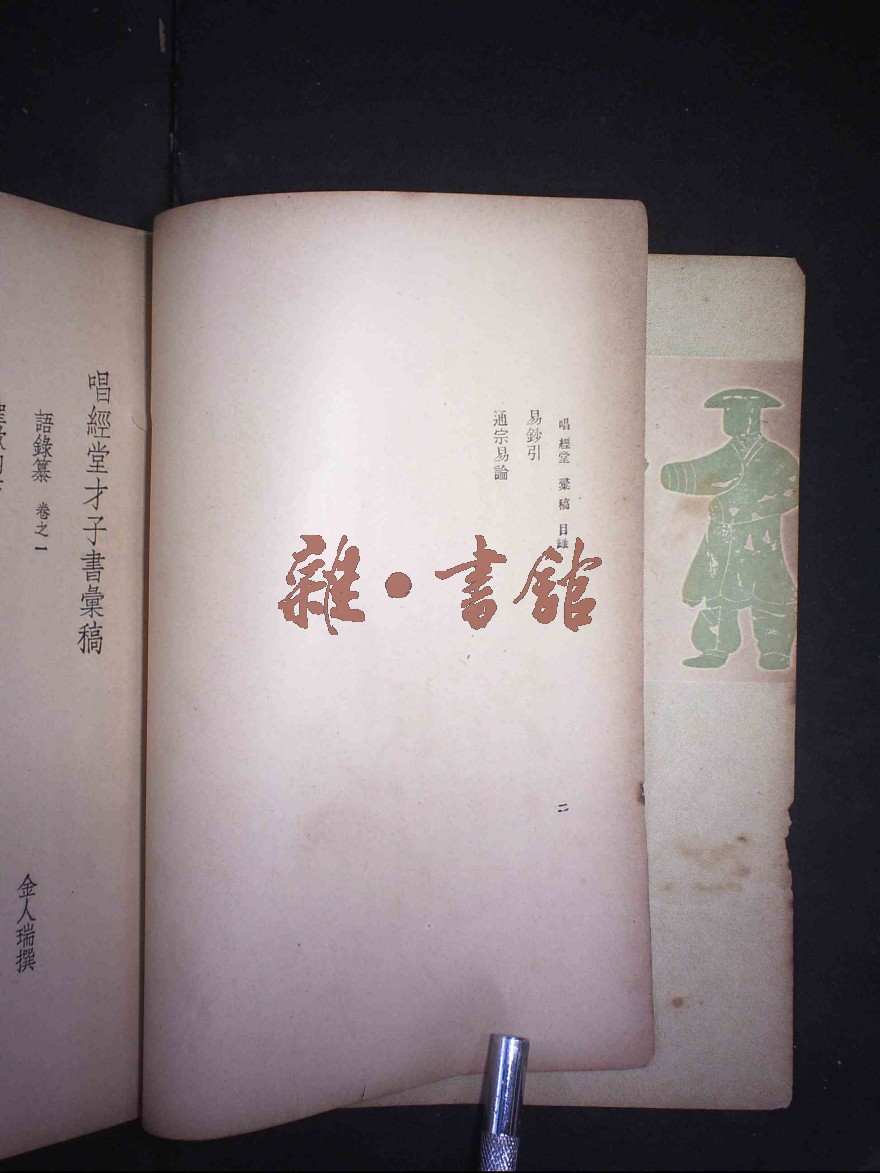 唱經堂彙稿 目錄
易鈔引
通宗易論
二
唱經堂才子書彙稿
語錄纂 卷之一
金人瑞撰
雜·書館